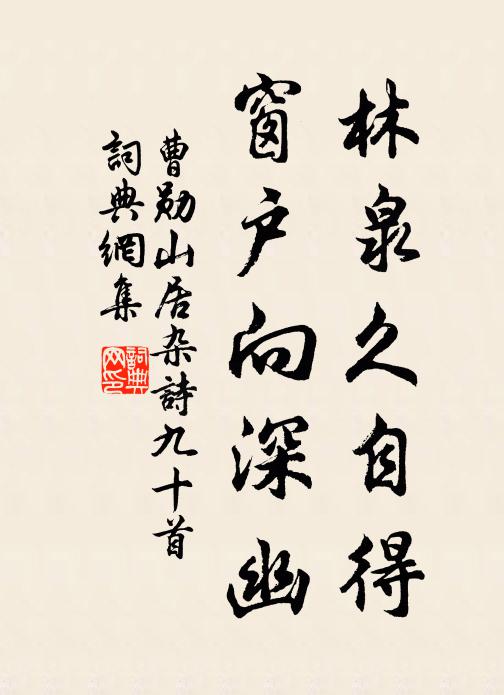 林泉久自得
窗户向深幽
曹勋山居杂詩九十首
詞典網集
詞典网印